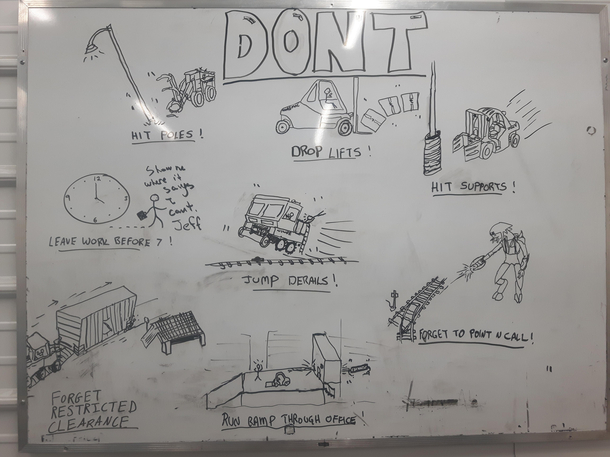 DONT
HIT POLES!
DROP LIFTS!
HIT SUPPORTS!
12
3
6
9
Show me
where it
says
I
cant.
Jeff
LEAVE WORK BEFORE 7!
JUMP DERAILS!
FORGET TO POINT N CALL!
FORGET
RESTRICTED
CLEARANCE
RUN RAMP THROUGH OFFICE!